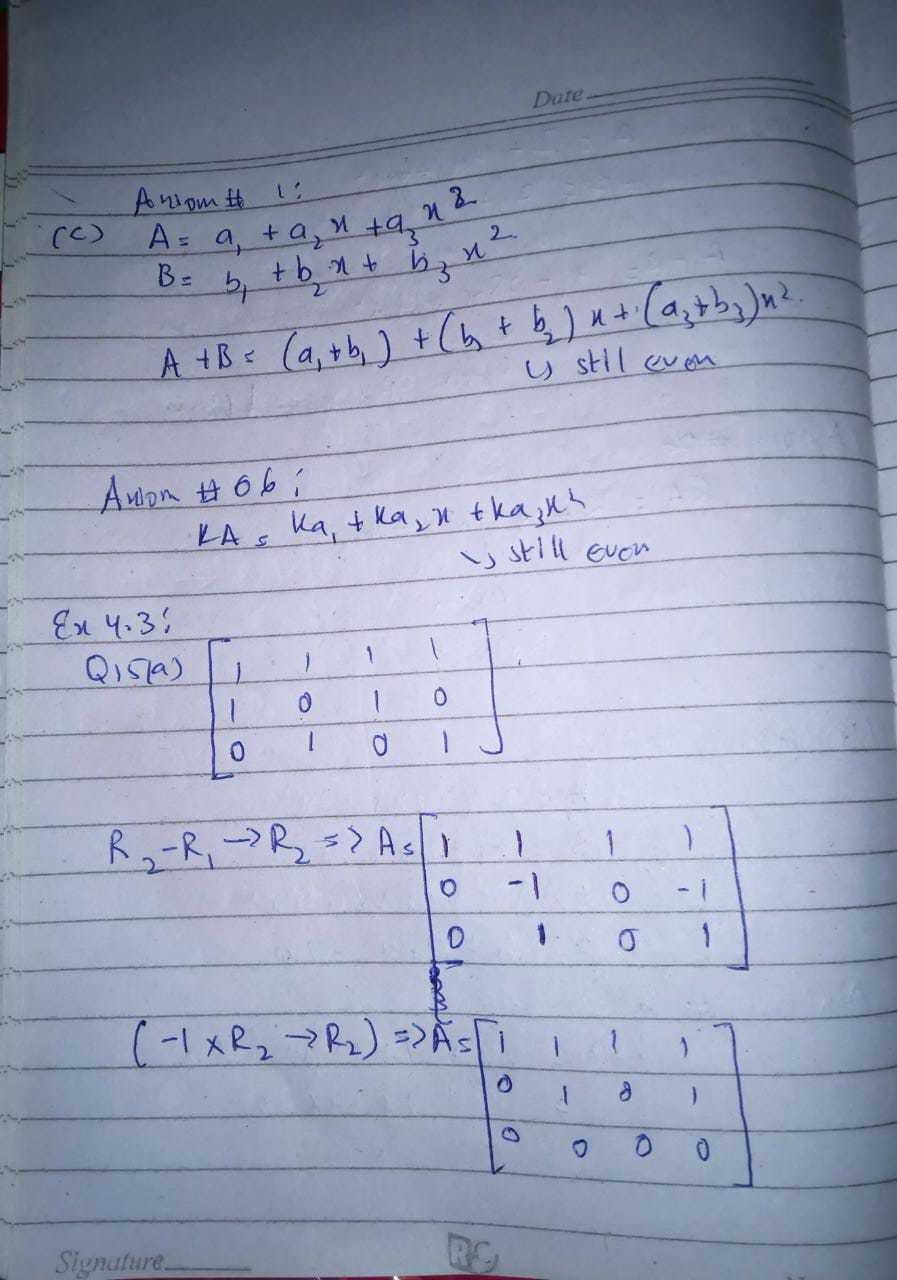 Date
Axiom # 1:
(c) A = a₁ + a₂x + a₃x²
B = b₁ + b₂x + b₃x²
A + B = (a₁+b₁) + (b₂ + b₂)x + (a₃+b₃)x².
↳ still even
Axiom # 06:
KA = Ka₁ + Ka₂x + Ka₃x²
↳ still even
Ex 4.3:
Q15(a) [1 1 1 1
1 0 1 0
0 1 0 1]
R₂-R₁ → R₂ => A = [1 1 1 1
0 -1 0 -1
0 1 0 1]
(-1 × R₂ → R₂) => A = [1 1 1 1
0 1 0 1
0 0 0 0]
Signature
RC